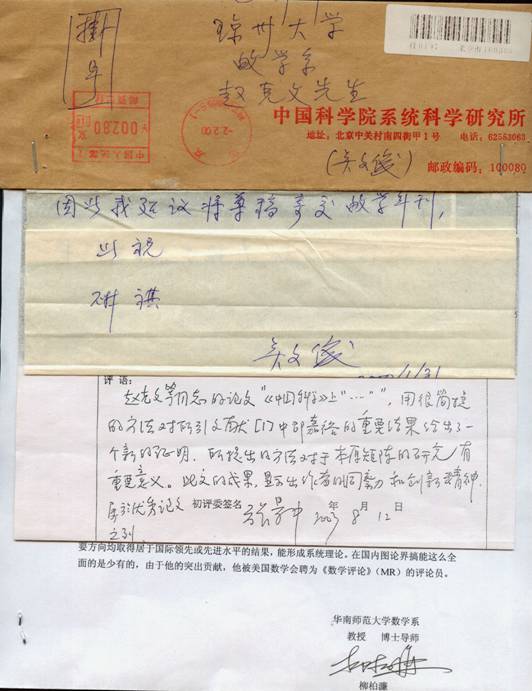 掛号
琼州大学
数学系
赵克文先生
中国科学院系统科学研究所
地址：北京中关村南四街甲1号 电话：62553063
(吴文俊)
邮政编码：100080
00280
因此我建议将尊稿寄交数学年刊，
此祝
研祺
吴文俊
评语：
赵克文等同志的论文“《中国科学》上“……””，用很简捷
的方法对所引文献[1]中邵嘉裕的重要结果给出了一
个新的证明，所提出的方法对于本原矩阵的研究有
重要意义。此文的成果，显示出作者的勤奋和创新精神，
属于优秀论文
之列
初评委签名 张景中 2003年8月12日
要方向均取得居于国际领先或先进水平的结果，能形成系统理论。在国内图论界搞能这么全
面的是少有的，由于他的突出贡献，他被美国数学会聘为《数学评论》（MR）的评论员。
华南师范大学数学系
教授 博士导师
柳柏濂